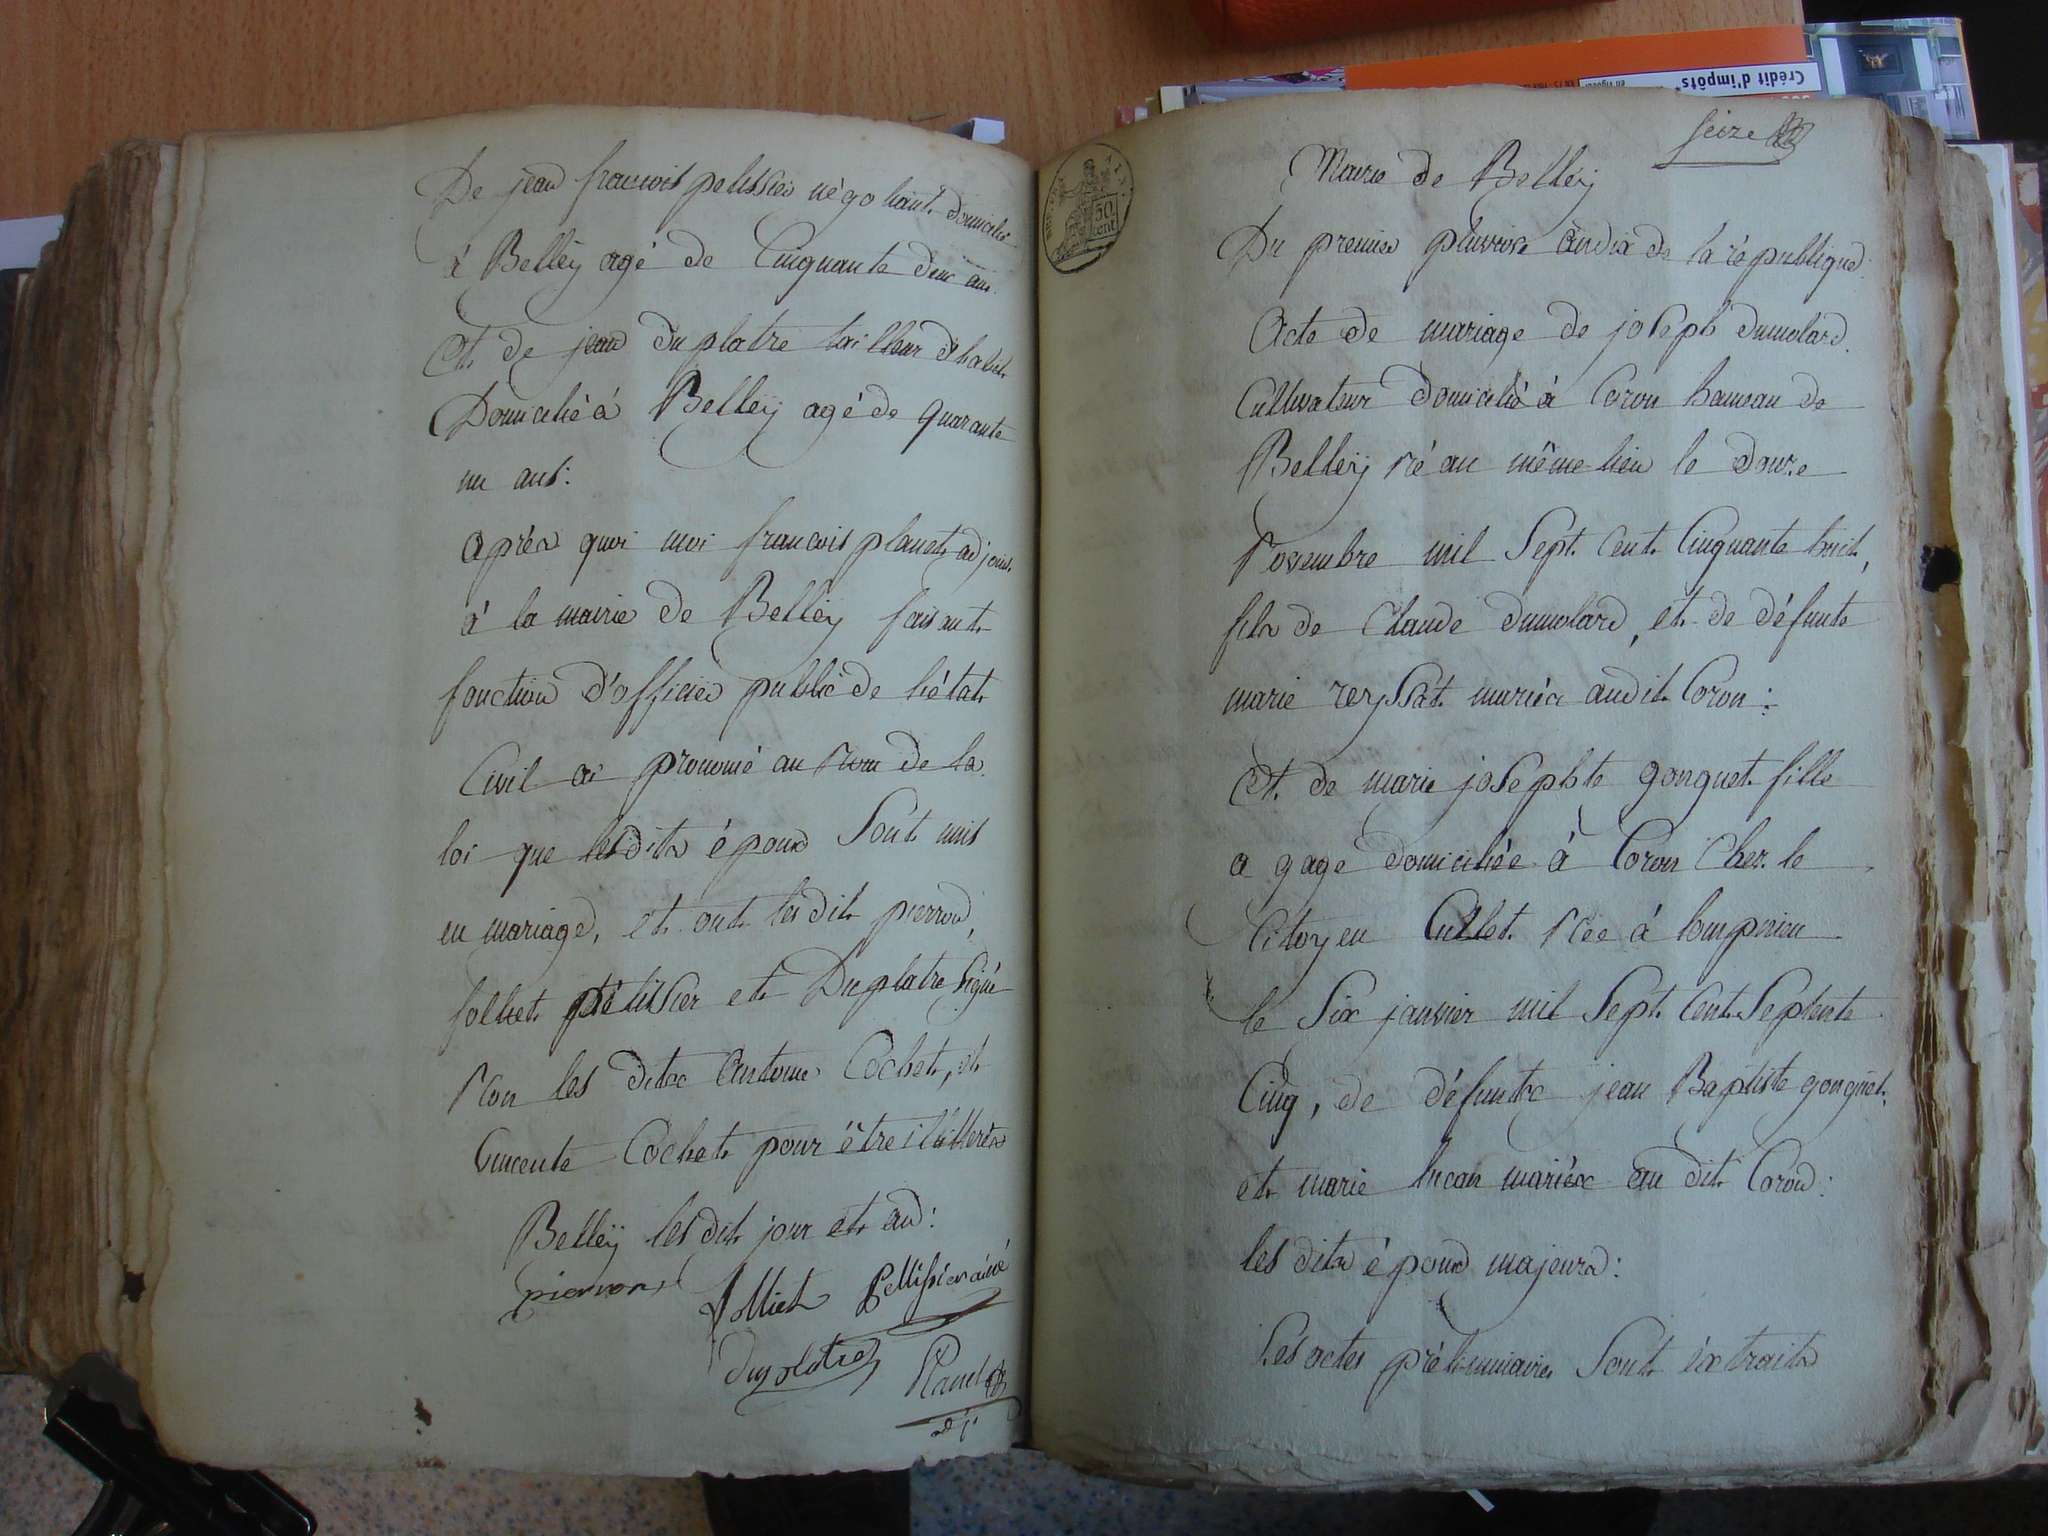 De jean francois pelissier négotiant domicilié
à Belleÿ agé de Cinquante deux ans.
Et de jean duplatre tailleur d'habit
Domicilié à Belleÿ agé de quarante
un ans:
après quoi moi francois planet adjoint
à la mairie de Belleÿ faisant
fonction d'officier public de l'état
Civil ai prononcé au nom de la
loi que lesdits époux Sont unis
en mariage, et ont lesdit pierron,
folliet pelissier et Duplatre Signé
Non les dits antoine Cochet, et
Vincente Cochet pour être illiterés
Belleÿ lesdit jour et an:
pierron
Jolliet Pellissier ainé
Duplatre Planet
adj.
seize
Mairie de Belleÿ
AIN
50
cent
Du premier pluviose an dix de la république
Acte de mariage de joseph dumolard
Cultivateur domicilié à Coron hameau de
Belleÿ né au même lieu le douze
Novembre mil Sept Cent Cinquante huit,
fils de Claude dumolard, et de défunte
marie reyssat mariés audit Coron:
Et de marie josephte gonguet fille
a gage domiciliée à Coron Chez le
Citoyen Cullet Née à lompnieu
le Six janvier mil Sept Cent Septente
Cinq, de défunts jean Baptiste gonguet
et marie lucan mariés au dit Coron:
les dits époux majeurs:
Les actes préliminaires Sont extraits
Crédit d'impôts
en vigueur